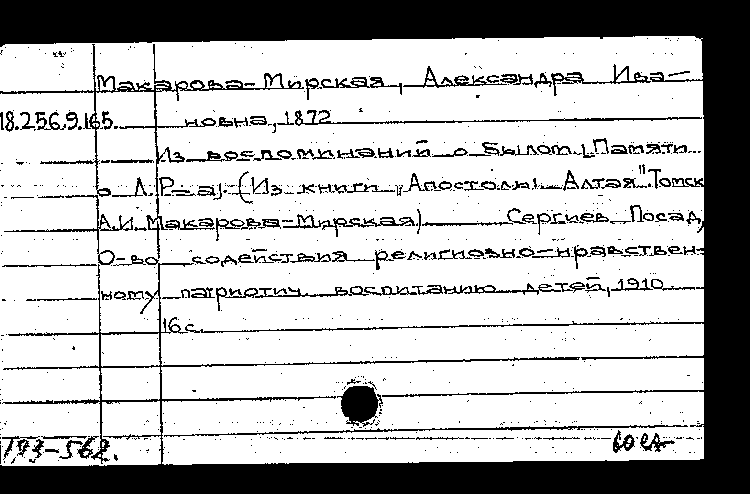 Макарова-Мирская, Александра Ива-
18.256.9.165. новна, 1872
Из воспоминаний о былом. [Памяти
о Л. Р-а]. (Из книги „Апостолы Алтая" Томск
А.И. Макарова-Мирская) Сергиев Посад,
О-во содействия религиозно-нравствен-
ному патриотич. воспитанию детей, 1910
16 с.
193-562.